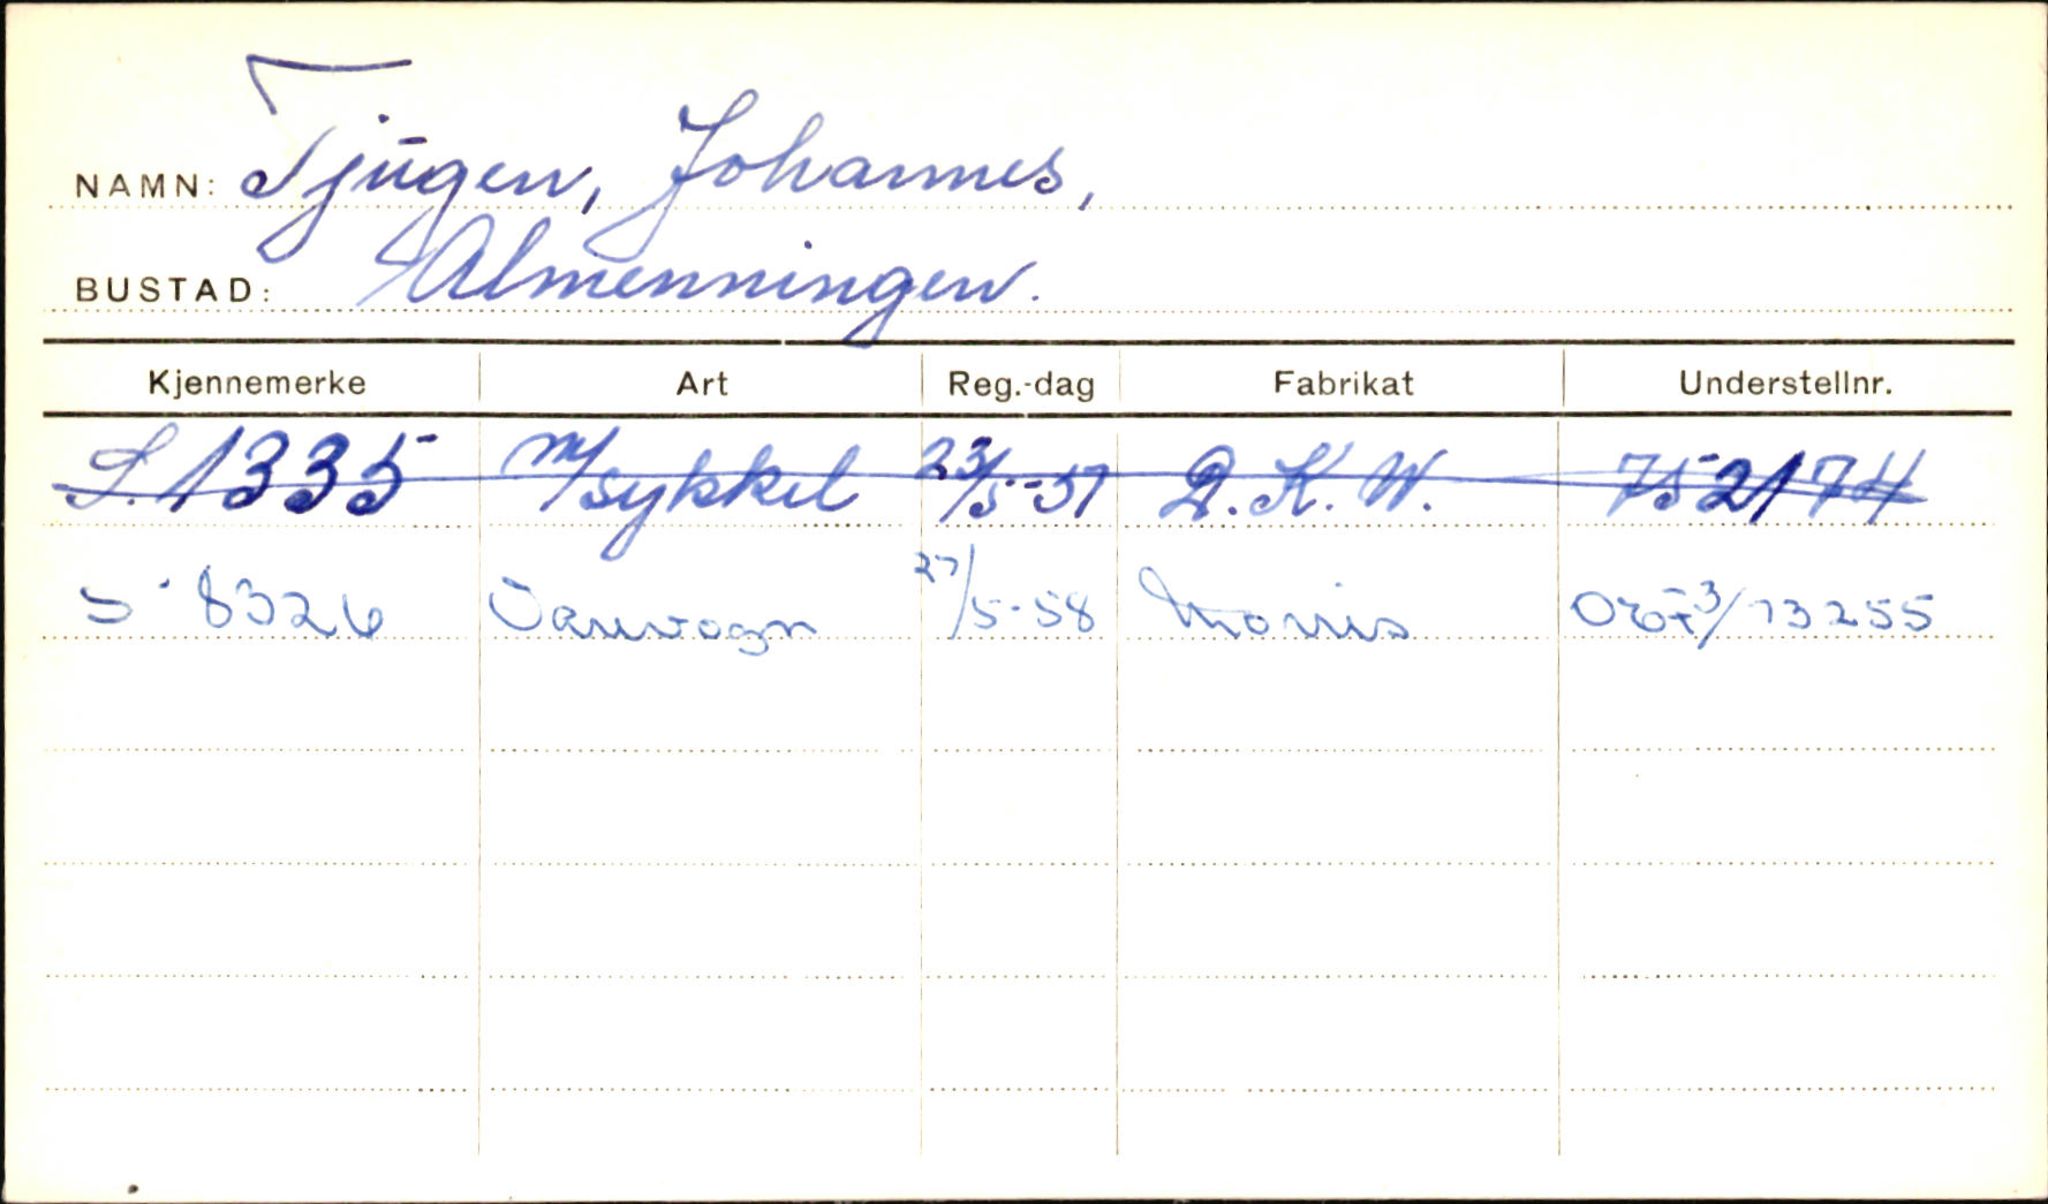 NAMN: Tjugen, Johannes,
BUSTAD: Almenningen.
Kjennemerke Art Reg.-dag Fabrikat Understellnr.
S. 1335 m/sykkel 23/5-57 D.K.W. 752174
S 8326 Varevogn 27/5-58 Morris /13255